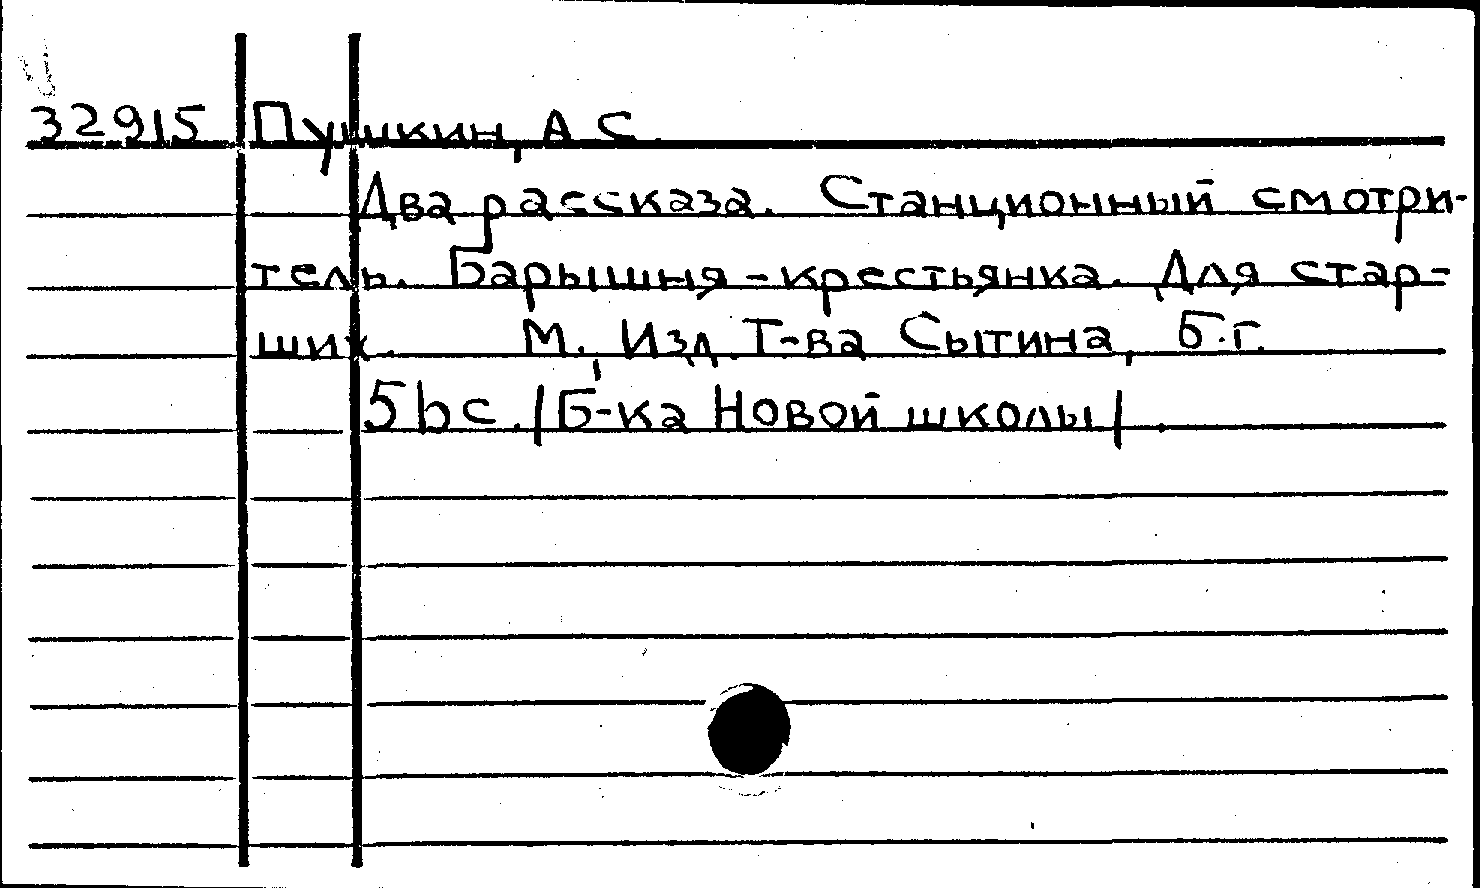 32915 Пушкин, А С.
Два рассказа. Станционный смотри-
тель. Барышня-крестьянка. Для стар-
ших. М., Изд. Т-ва Сытина, б.г.
56 с. /Б-ка Новой школы/.